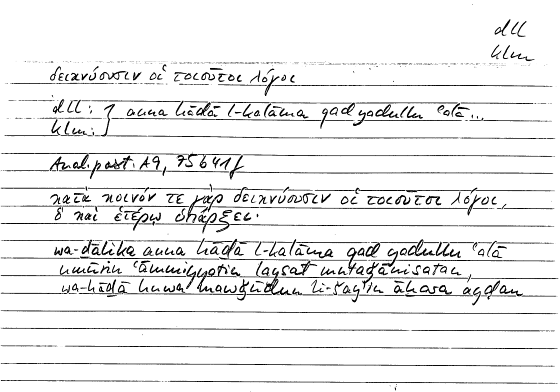 dll
klm
δεικνύουσιν οἱ τοιοῦτοι λόγοι
dll: } anna hāḏā l-kalāma qad yadullu ʿalā...
klm:
Anal. post. A9, 75b41f
κατὰ κοινόν τε γὰρ δεικνύουσιν οἱ τοιοῦτοι λόγοι,
ὃ καὶ ἑτέρῳ ὑπάρξει·
wa-ḏālika anna hāḏā l-kalāma qad yadullu ʿalā
umūrin ʿāmmiyyatin laysat mutaǧānisatan,
wa-hāḏā huwa mawǧūdun li-šayʾin āḫara ayḍan